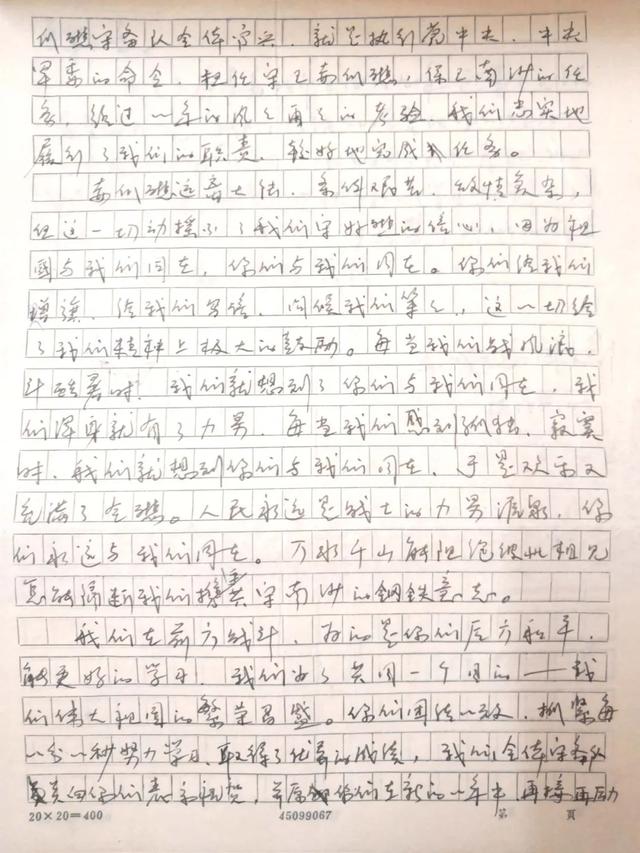 们礁守备队全体官兵，就是执行党中央、中央
军委的命令，担任守卫南们礁，保卫南沙的任
务，经过一年的风风雨雨的考验，我们忠实地
履行了我们的职责，较好地完成了任务。
南们礁远离大陆，条件艰苦，敌情复杂，
但这一切动摇不了我们守好礁的信心，因为祖
国与我们同在，你们与我们同在。你们给我们
赠旗、给我们写信、问候我们等等，这一切给
了我们精神上极大的鼓励。每当我们战风浪，
斗酷暑时，我们就想到了你们与我们同在，我
们浑身就有了力量，每当我们感到孤独、寂寞
时，我们就想到你们与我们同在，于是欢乐又
充满了全礁。人民永远是战士的力量源泉，你
们永远与我们同在。万水千山能阻绝彼此相见
怎能隔断我们携守南沙的钢铁意志。
我们在前方战斗，为的是你们后方和平，
能更好的学习，我们为了共同一个目的——我
们伟大祖国的繁荣昌盛。你们团结一致，抓紧每
一分一秒努力学习，取得了优异的成绩，我们全体守备队
员向你们表示祝贺，并愿你们在新的一年中再接再励
20×20=400
45099067
第 页